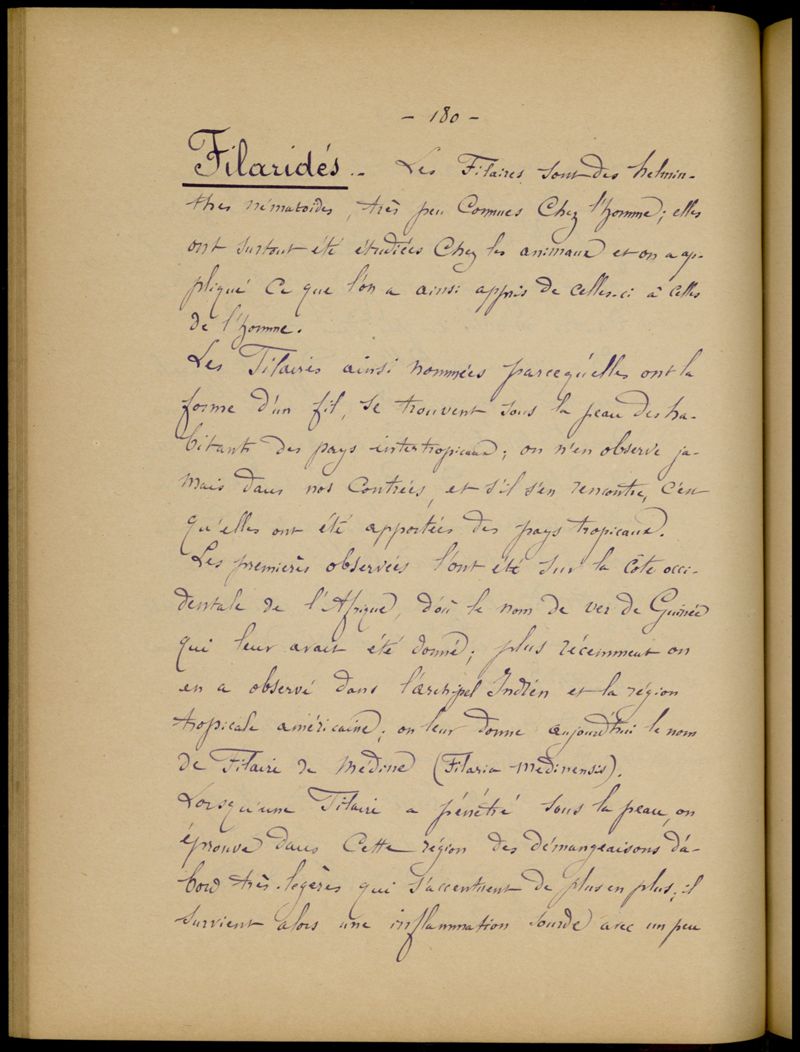 - 180 -
Filaridés.- Les Filaires sont des helmin-
thes nématoïdes, très peu connues chez l'homme; elles
ont surtout été étudiées chez les animaux et on a ap-
pliqué ce que l'on a ainsi appris de celles-ci à celles
de l'homme.
Les Filaires ainsi nommées parcequ'elles ont la
forme d'un fil, se trouvent sous la peau des ha-
bitants des pays intertropicaux; on n'en observe ja-
mais dans nos contrées, et s'il s'en rencontre, c'est
qu'elles ont été apportées des pays tropicaux.
Les premières observées l'ont été sur la côte occi-
dentale de l'Afrique, d'où le nom de ver de Guinée
qui leur avait été donné; plus récemment on
en a observé dans l'archipel Indien et la région
tropicale américaine; on leur donne aujourd'hui le nom
de Filaire de Médine (Filaria Medinensis).
Lorsqu'une Filaire a pénétré sous la peau, on
éprouve dans cette région des démangeaisons d'a-
bord très-légères qui s'accentuent de plus en plus; il
survient alors une inflammation sourde avec un peu